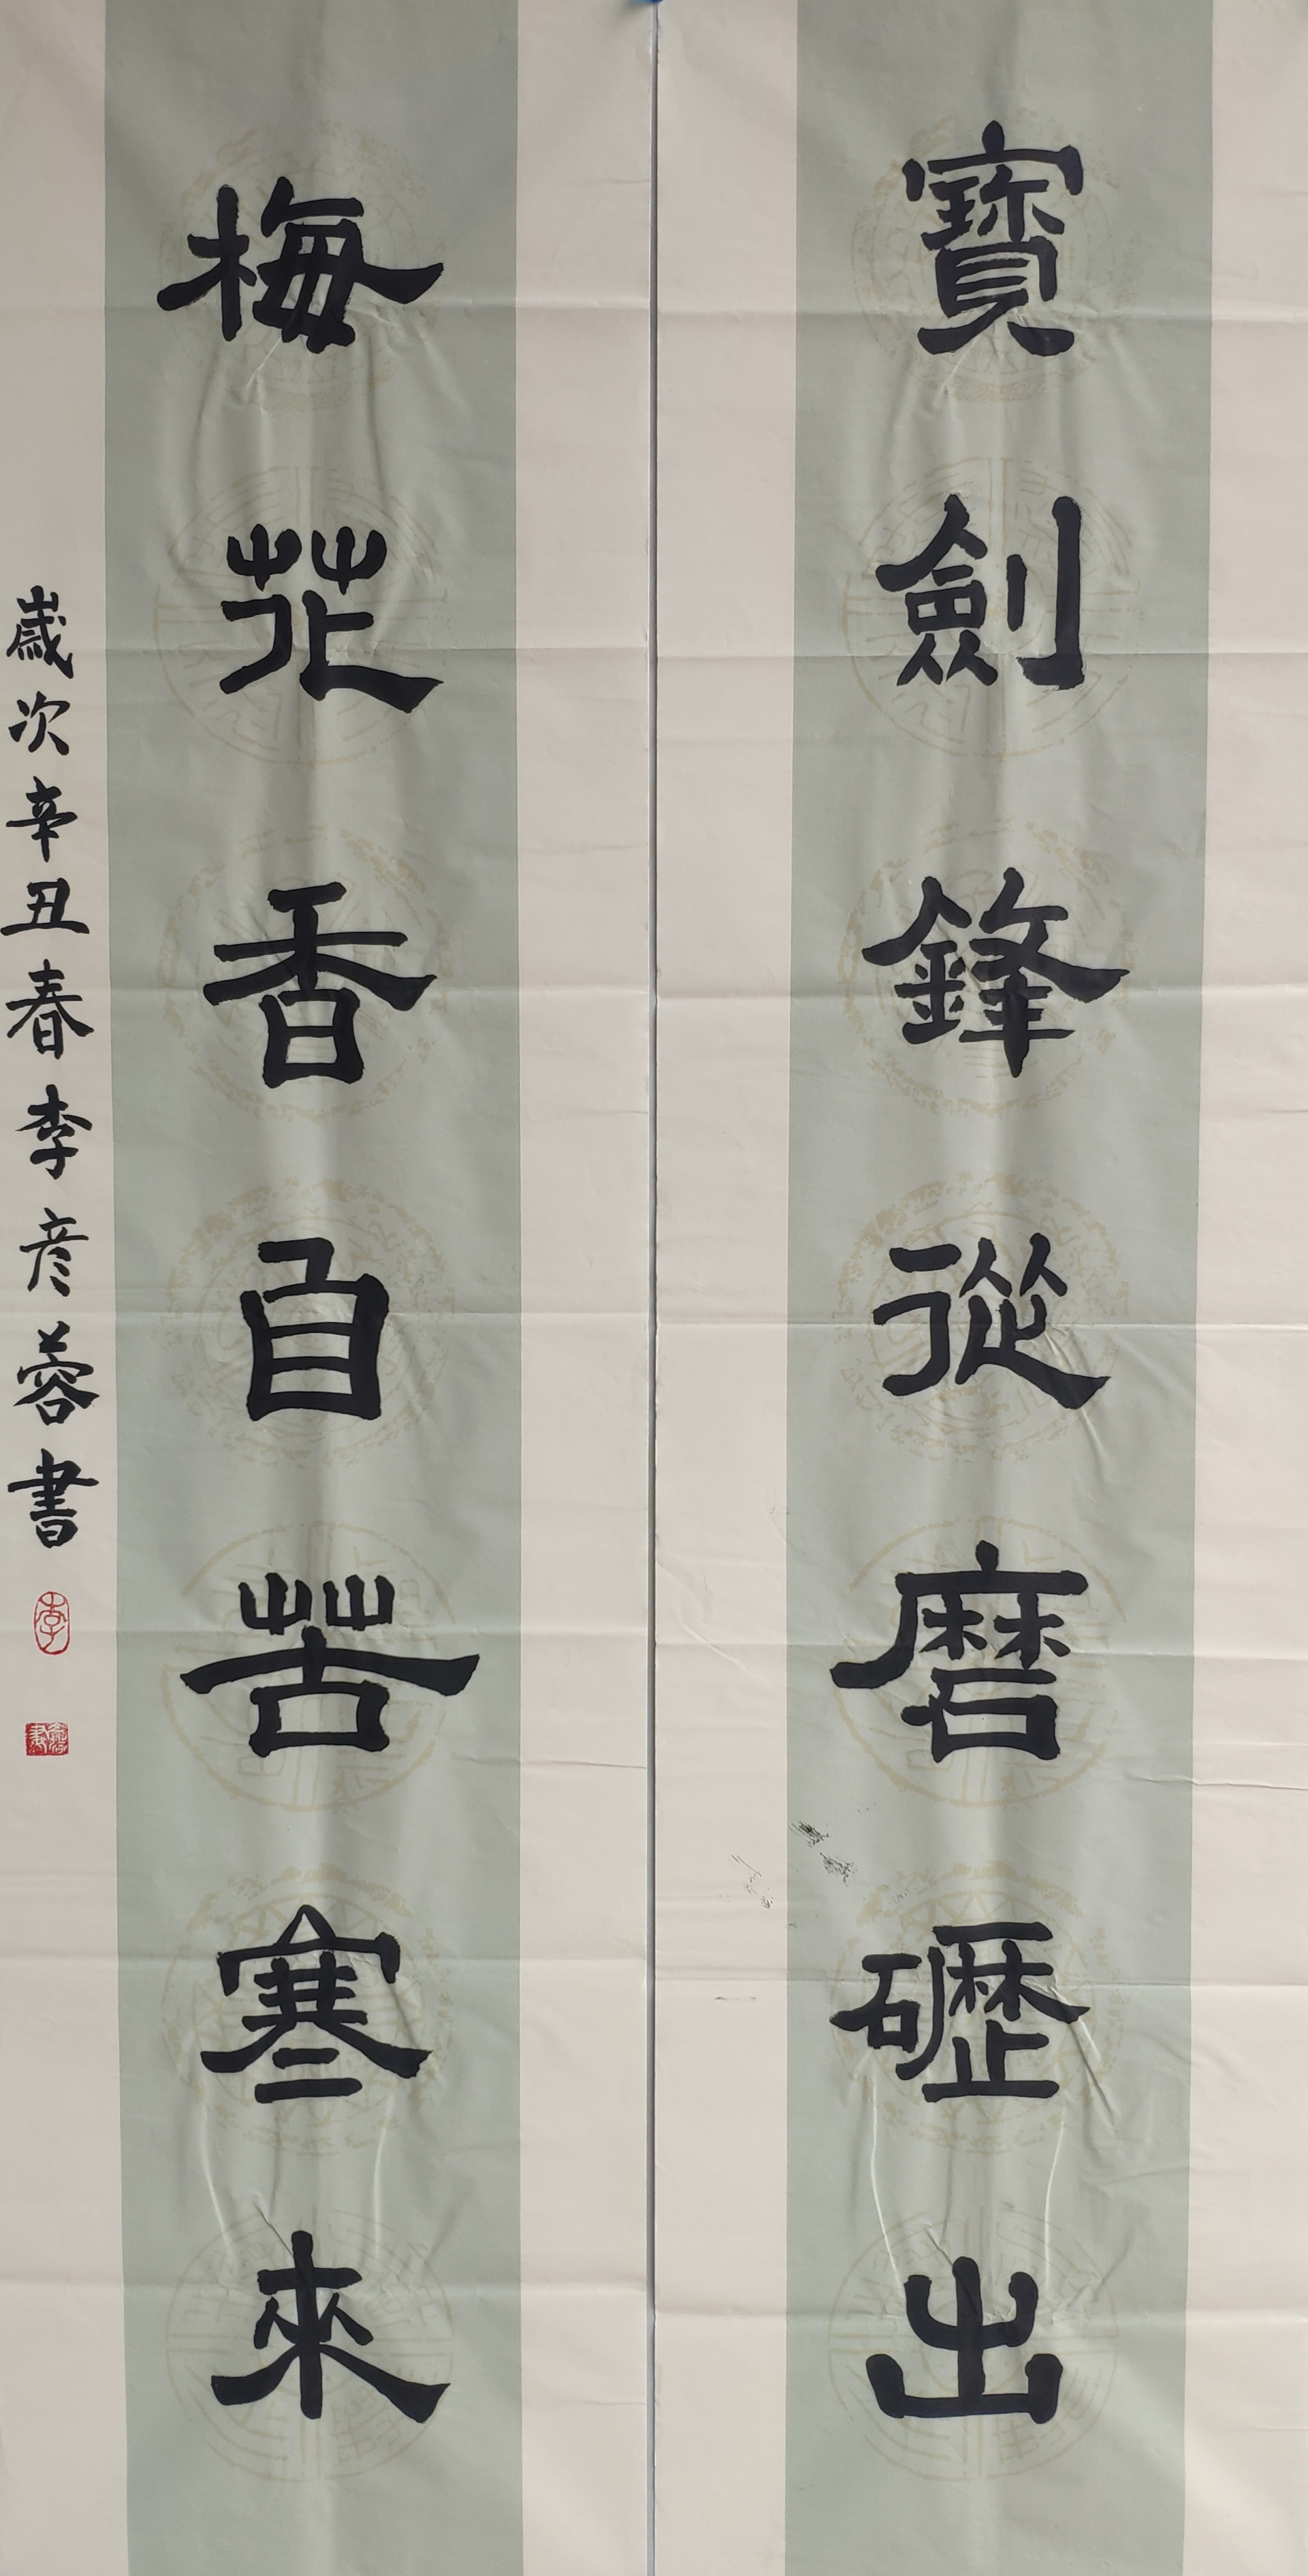 寶劍鋒從磨礰出
梅花香自苦寒來
歲次辛丑春李彦蓉書
李